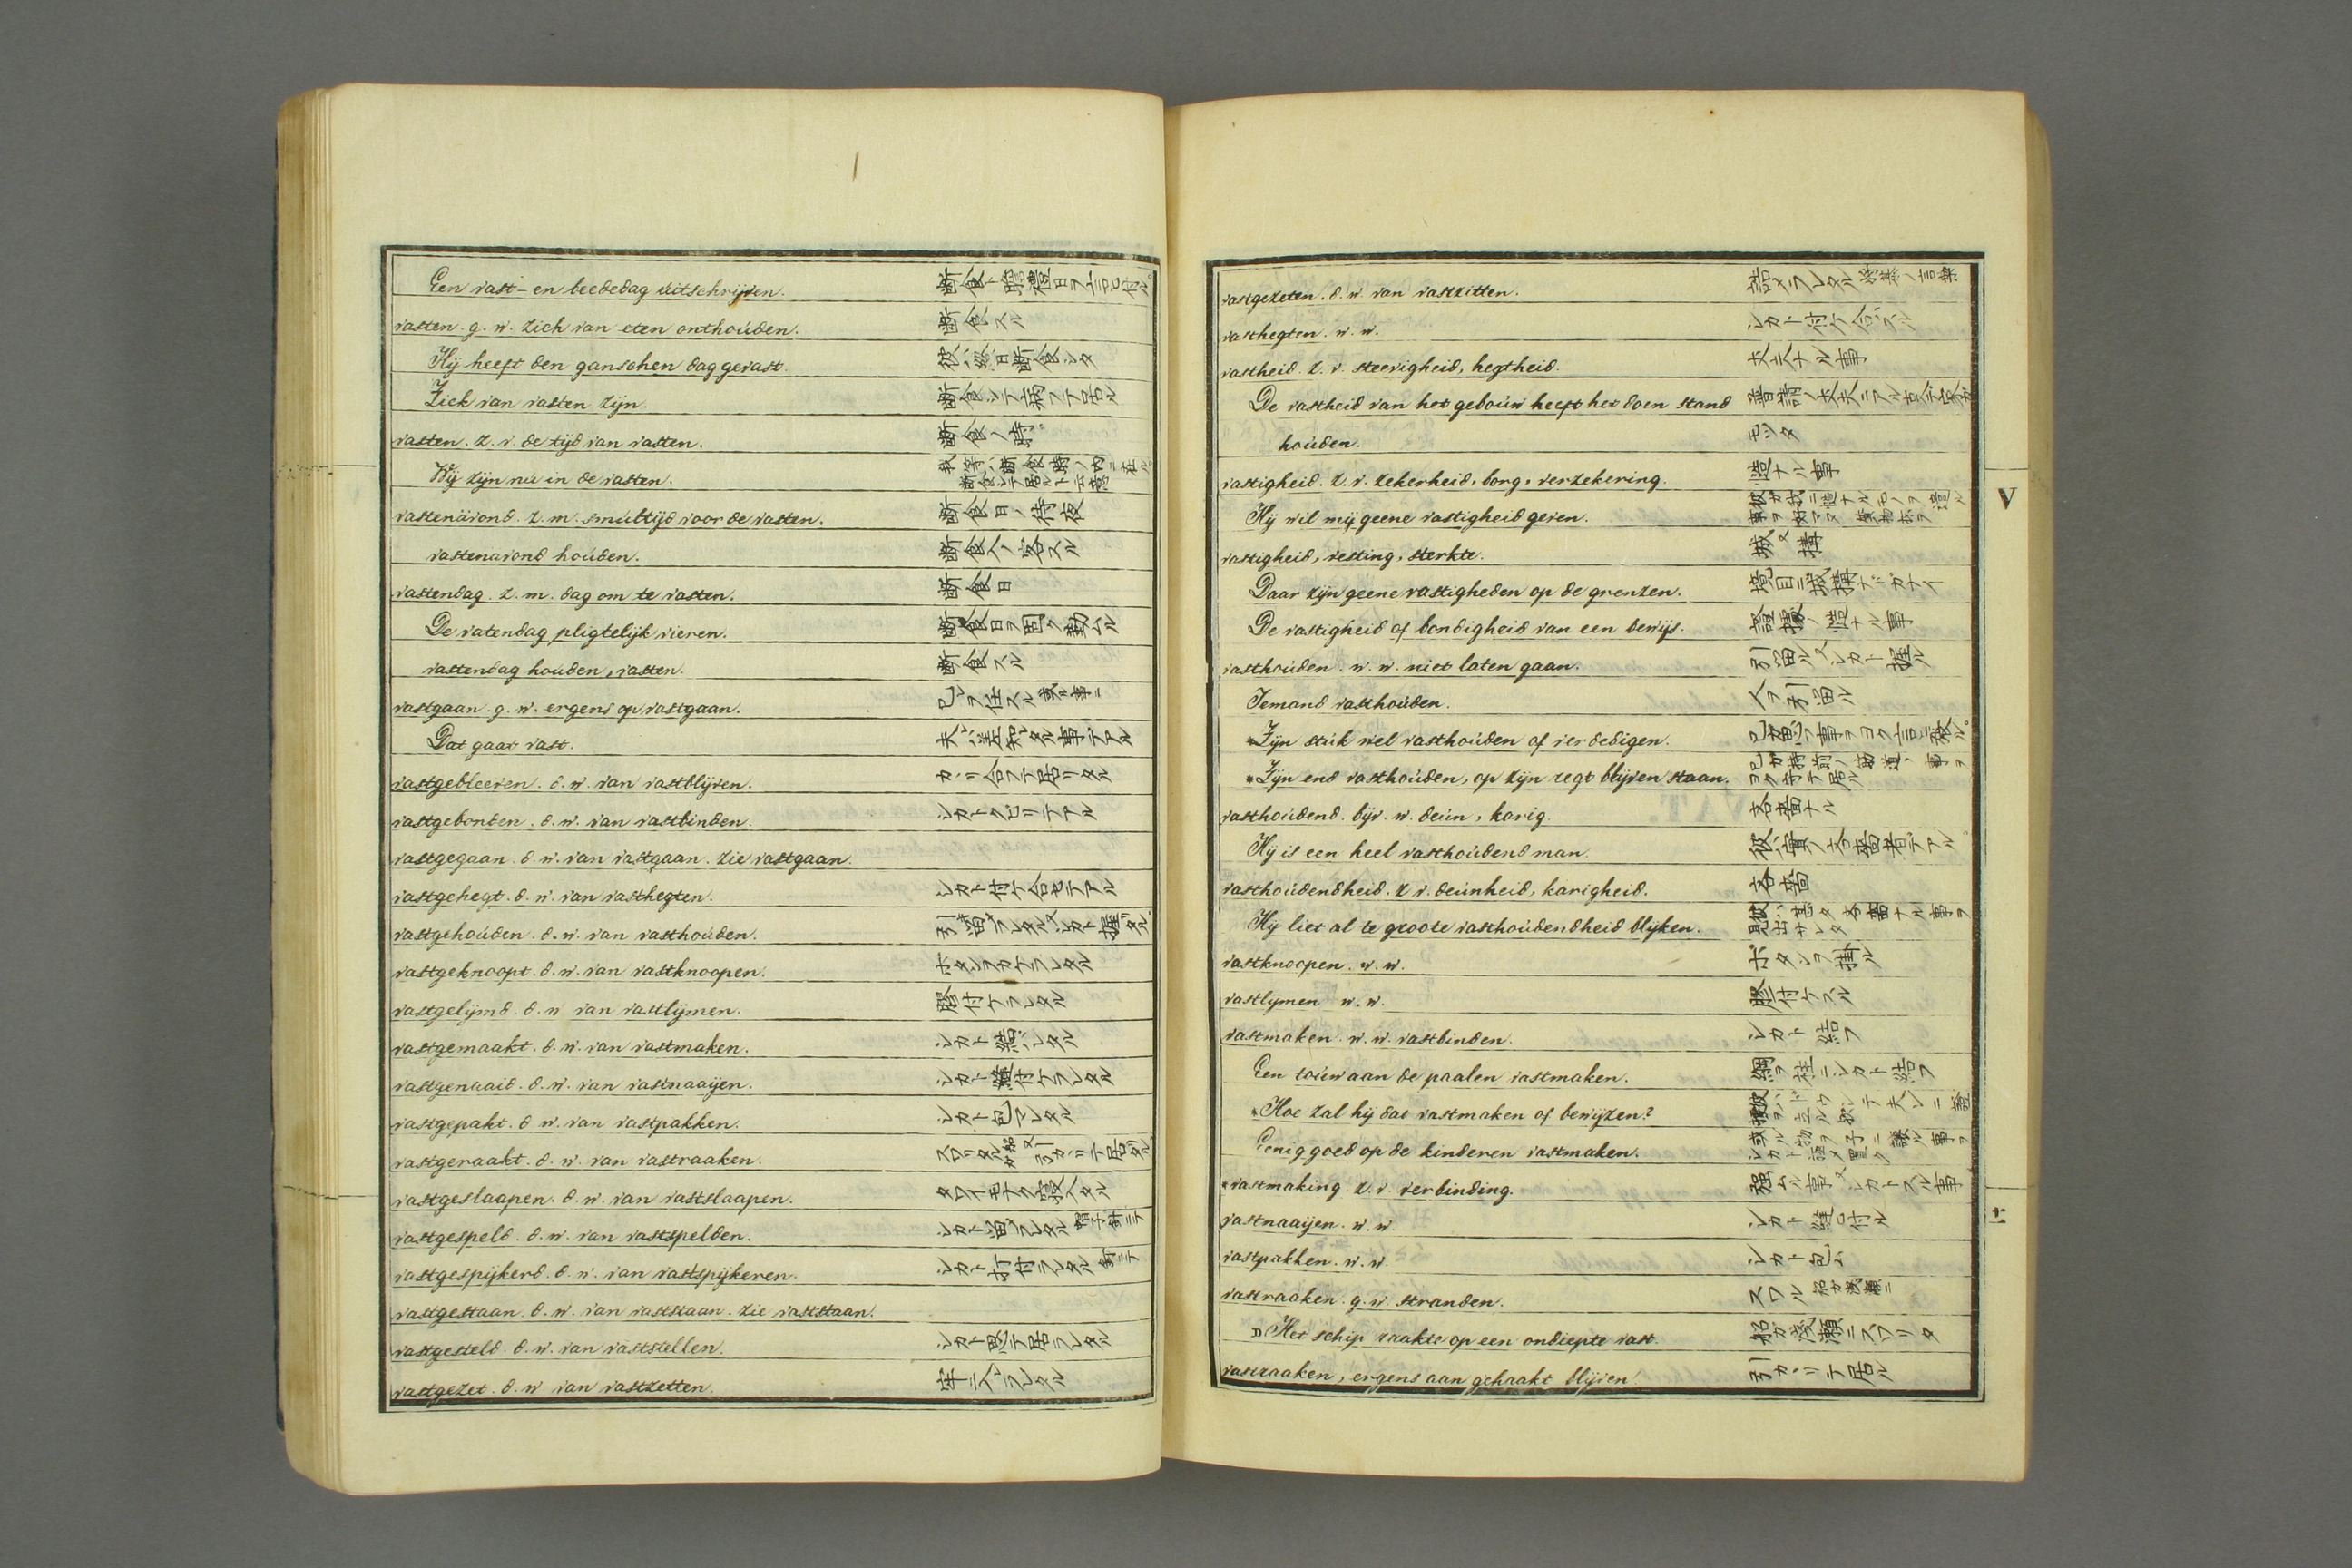 Een vast- en beededag uitschrijven. 断食ト賜禮日ヲ言ヒ付ル
vasten. g. w. zich van eten onthoúden. 断食スル
Hij heeft den ganschen dag gevast. 彼ハ終日断食シタ
Ziek van vasten zijn. 断食シテ病フテ居ル
vasten. z. v. de tijd van vasten. 断食ノ時
Wij zijn nú in de vasten. 我等ハ断食時ノ内ニ在ル 断食シテ居ルト云意
vastenävond. z. m. smúltijd voor de vasten. 断食日ノ待夜
vastenavond houden. 断食ノ客スル
vastendag. z. m. dag om te vasten. 断食日
De vatendag pligtelijk vieren. 断食日ヲ固ク勤ムル
vastendag houden, vasten. 断食スル
vastgaan. g. w. ergens op vastgaan. 己レヲ任スル或ル事ニ
Dat gaat vast. 夫ハ必知レタル事テアル
vastgebleeven. d. w. van vastblijven.
vastgebonden. d. w. van vastbinden. シカトクビリテアル
vastgegaan. d. w. van vastgaan. zie vastgaan.
vastgehegt. d. w. van vasthegten. シカト付ケ合セテアル
vastgehoúden. d. w. van vasthoúden. 引留ラレタル又シカト握リタル
vastgeknoopt. d. w. van vastknoopen. ボタンヲカケラレタル
vastgelijmd. d. w van vastlijmen. 膠付ケラレタル
vastgemaakt. d. w. van vastmaken. シカト結バレタル
vastgenaaid. d. w. van vastnaaijen. シカト縫付ケラレタル
vastgepakt. d w. van vastpakken. シカト包マレタル
vastgeraakt. d. w. van vastraaken. スワリタル船ガ 又引カカリテ居タル
vastgeslaapen. d. w. van vastslaapen. タワイモナク寝入タル
vastgespeld. d. w. van vastspelden. シカト留ラレタル帽子針ニテ
vastgespijkerd. d. w. van vastspijkeren. シカト打付ラレタル釘ニテ
vastgestaan. d. w. van vaststaan. zie vaststaan.
vastgesteld. d. w. van vaststellen. シカト思テ居ラレタル
vastgezet. d. w van vastzetten. 牢ニ入ラレタル
vastgezeten. d. w. van vastzitten.
vasthegten. w. w. シカト付ケ合スル
vastheid. z. v. steevigheid, hegtheid. 丈夫ナル事
De vastheid van het geboúw heeft het doen stand 普請ノ丈夫ニアル
hoúden. モツタ
vastigheid. z. v. zekerheid, borg, verzekering. 慥ナル事
Hij wil mij geene vastigheid geven. 彼ガ我ニ慥ナルモノヲ遣ル事ヲ好マヌ
vastigheid, vesting, sterkte. 城又構
Daar zijn geene vastigheden op de grenzen. 境目ニ城構ナドガナイ
De vastigheid of bondigheid van een bewijs. 證據ノ慥ナル事
vasthoúden. w. w. niet laten gaan. 引留ル又シカト握ル
Iemand vasthoúden. 人ヲ引留ル
*Zijn stúk wel vasthoúden of verdedigen. 己ガ思フ事ヲヨク言
*Zijn end vasthoúden, op zijn regt blijven staan. ヨク守テ居ル
vasthoúdend. bijv. w. deún, karig. 吝嗇ナル
Hij is een heel vasthoúdend man. 彼ハ實ノ吝嗇者デアル
vasthoúdendheid. z v. deúnheid, karigheid. 吝嗇
Hij liet al te groote vasthoúdendheid blijken. 彼ハ甚タ吝嗇ナル事ヲ見出サレタ
vastknoopen. w. w. ボタンヲ掛ル
vastlijmen w. w. 膠付ケスル
vastmaken. w. w. vastbinden. シカト結フ
Een toúw aan de paalen vastmaken. 綱ヲ柱ニシカト結フ
*Hoe zal hij dat vastmaken of bewijzen?
Eenig goed op de kinderen vastmaken. 或ル物ヲ子ニ譲ル事ヲシカト極メ置ク
*vastmaking. z. v. verbinding. 強ムル事又シカトスル事
vastnaaijen. w. w. シカト縫ヒ付ル
vastpakken. w. w. シカト包ム
vastraaken. g. w. stranden. スワル 船ガ浅瀬ニ
Het schip raakte op een ondiepte vast. 船ガ浅瀬ニスワリタ
vastraaken, ergens aan gehaakt blijven 引カカリテ居ル
V